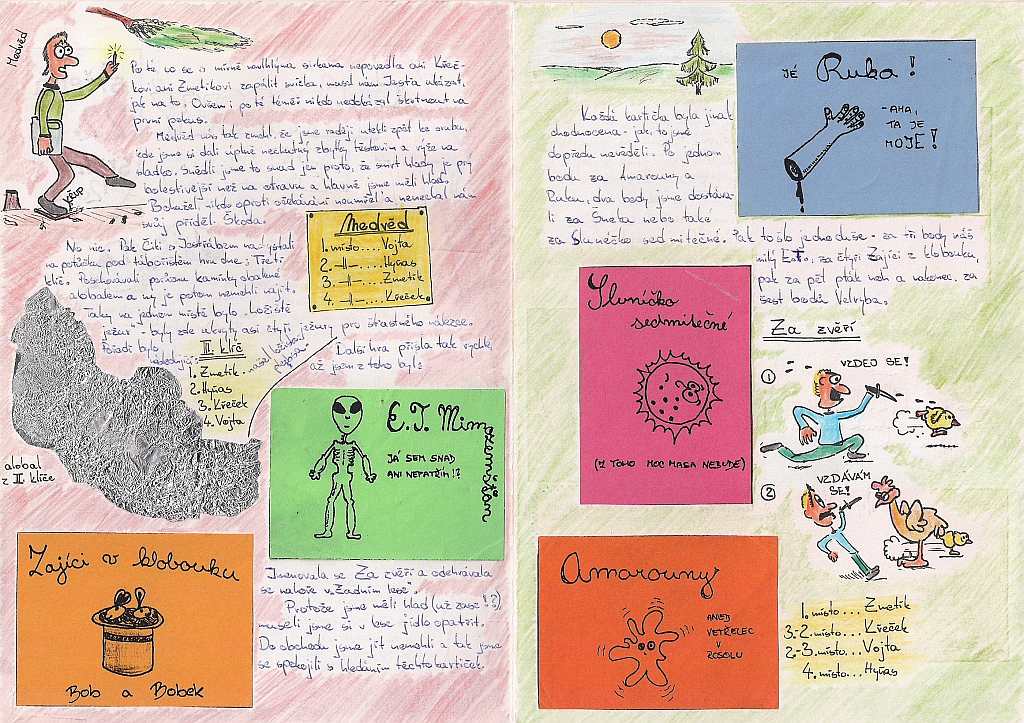 Medvěd
Poté co se s mírně navlhlýma sirkama nepovedla ani Křeč-
kovi ani Zmetikovi zapálit svíčka, musel nám Jestřa ukázat,
jak na to. Ovšem i poté téměř nikdo nedokázal škrtnout na
první pokus.
Medvěd nás tak zmohl, že jsme raději utekli zpět ke srubu,
kde jsme si dali úplně nechutný zbytky těstovin a rýže na
sladko. Snědli jsme to snad jen proto, že smrt hlady je prý
bolestivější než na otravu a hlavně jsme měli hlad.
Bohužel, nikdo oproti očekávání neumřel a nenechal nám
svůj příděl. Škoda.
křup
Medvěd
1. místo.... Vojta
2. -||-.... Hyňas
3. -||-.... Zmetik
4. -||-.... Křeček
No nic. Pak Čiki s Jestřábem na-
na potůčku pod tábořištěm hru dne: Třetí
klíč. Poschovávali porůznu kamínky obalené
alobalem a my je potom nemohli najít.
Taky na jednom místě bylo "Ložiště
ježur" - byly zde ukryty asi čtyři ježury pro šťastného nálezce.
Pořadí bylo
následující:
II. klíč
1. Zmetik - našel
2. Hyňas
3. Křeček
4. Vojta
Další hra přišla tak rychle,
až jsem z toho byl:
alobal
z II. klíče
E.T. Mimozemšťan
JÁ SEM SNAD
ANI NEPATŘÍM!?
Zajíci v klobouku
Bob a Bobek
Jmenovala se Za zvěří a odehrávala
se nahoře v "Zadním lese".
Protože jsme měli hlad (už zase!?)
museli jsme si v lese jídlo opatřit.
Do obchodu jsme jít nemohli a tak jsme
se spokojili s hledáním těchto kartiček.
JÉ Ruka!
- AHA,
TA JE
MOJE!
Každá kartička byla jinak
ohodnocena - jak, to jsme
dopředu nevěděli. Po jednom
bodu za Amarouny a
Ruku, dva body jsme dostáva-
li za Šneka nebo také
za Slunéčko sedmitečné. Pak to šlo jednoduše - za tři body náš
milý E.T., za čtyři Zajíci z klobouku,
pak za pět pták noh a nakonec za
šest bodů Velryba.
Sluníčko
sedmitečné
(Z TOHO MOC MASA NEBUDE)
Za zvěří
1 VZDEJ SE!
2 VZDÁVÁM
SE!
Amarouny
ANEB
VETŘELEC
V
ROSOLU
1. místo... Zmetik
3.-2. místo... Křeček
2.-3. místo... Vojta
4. místo... Hyňas